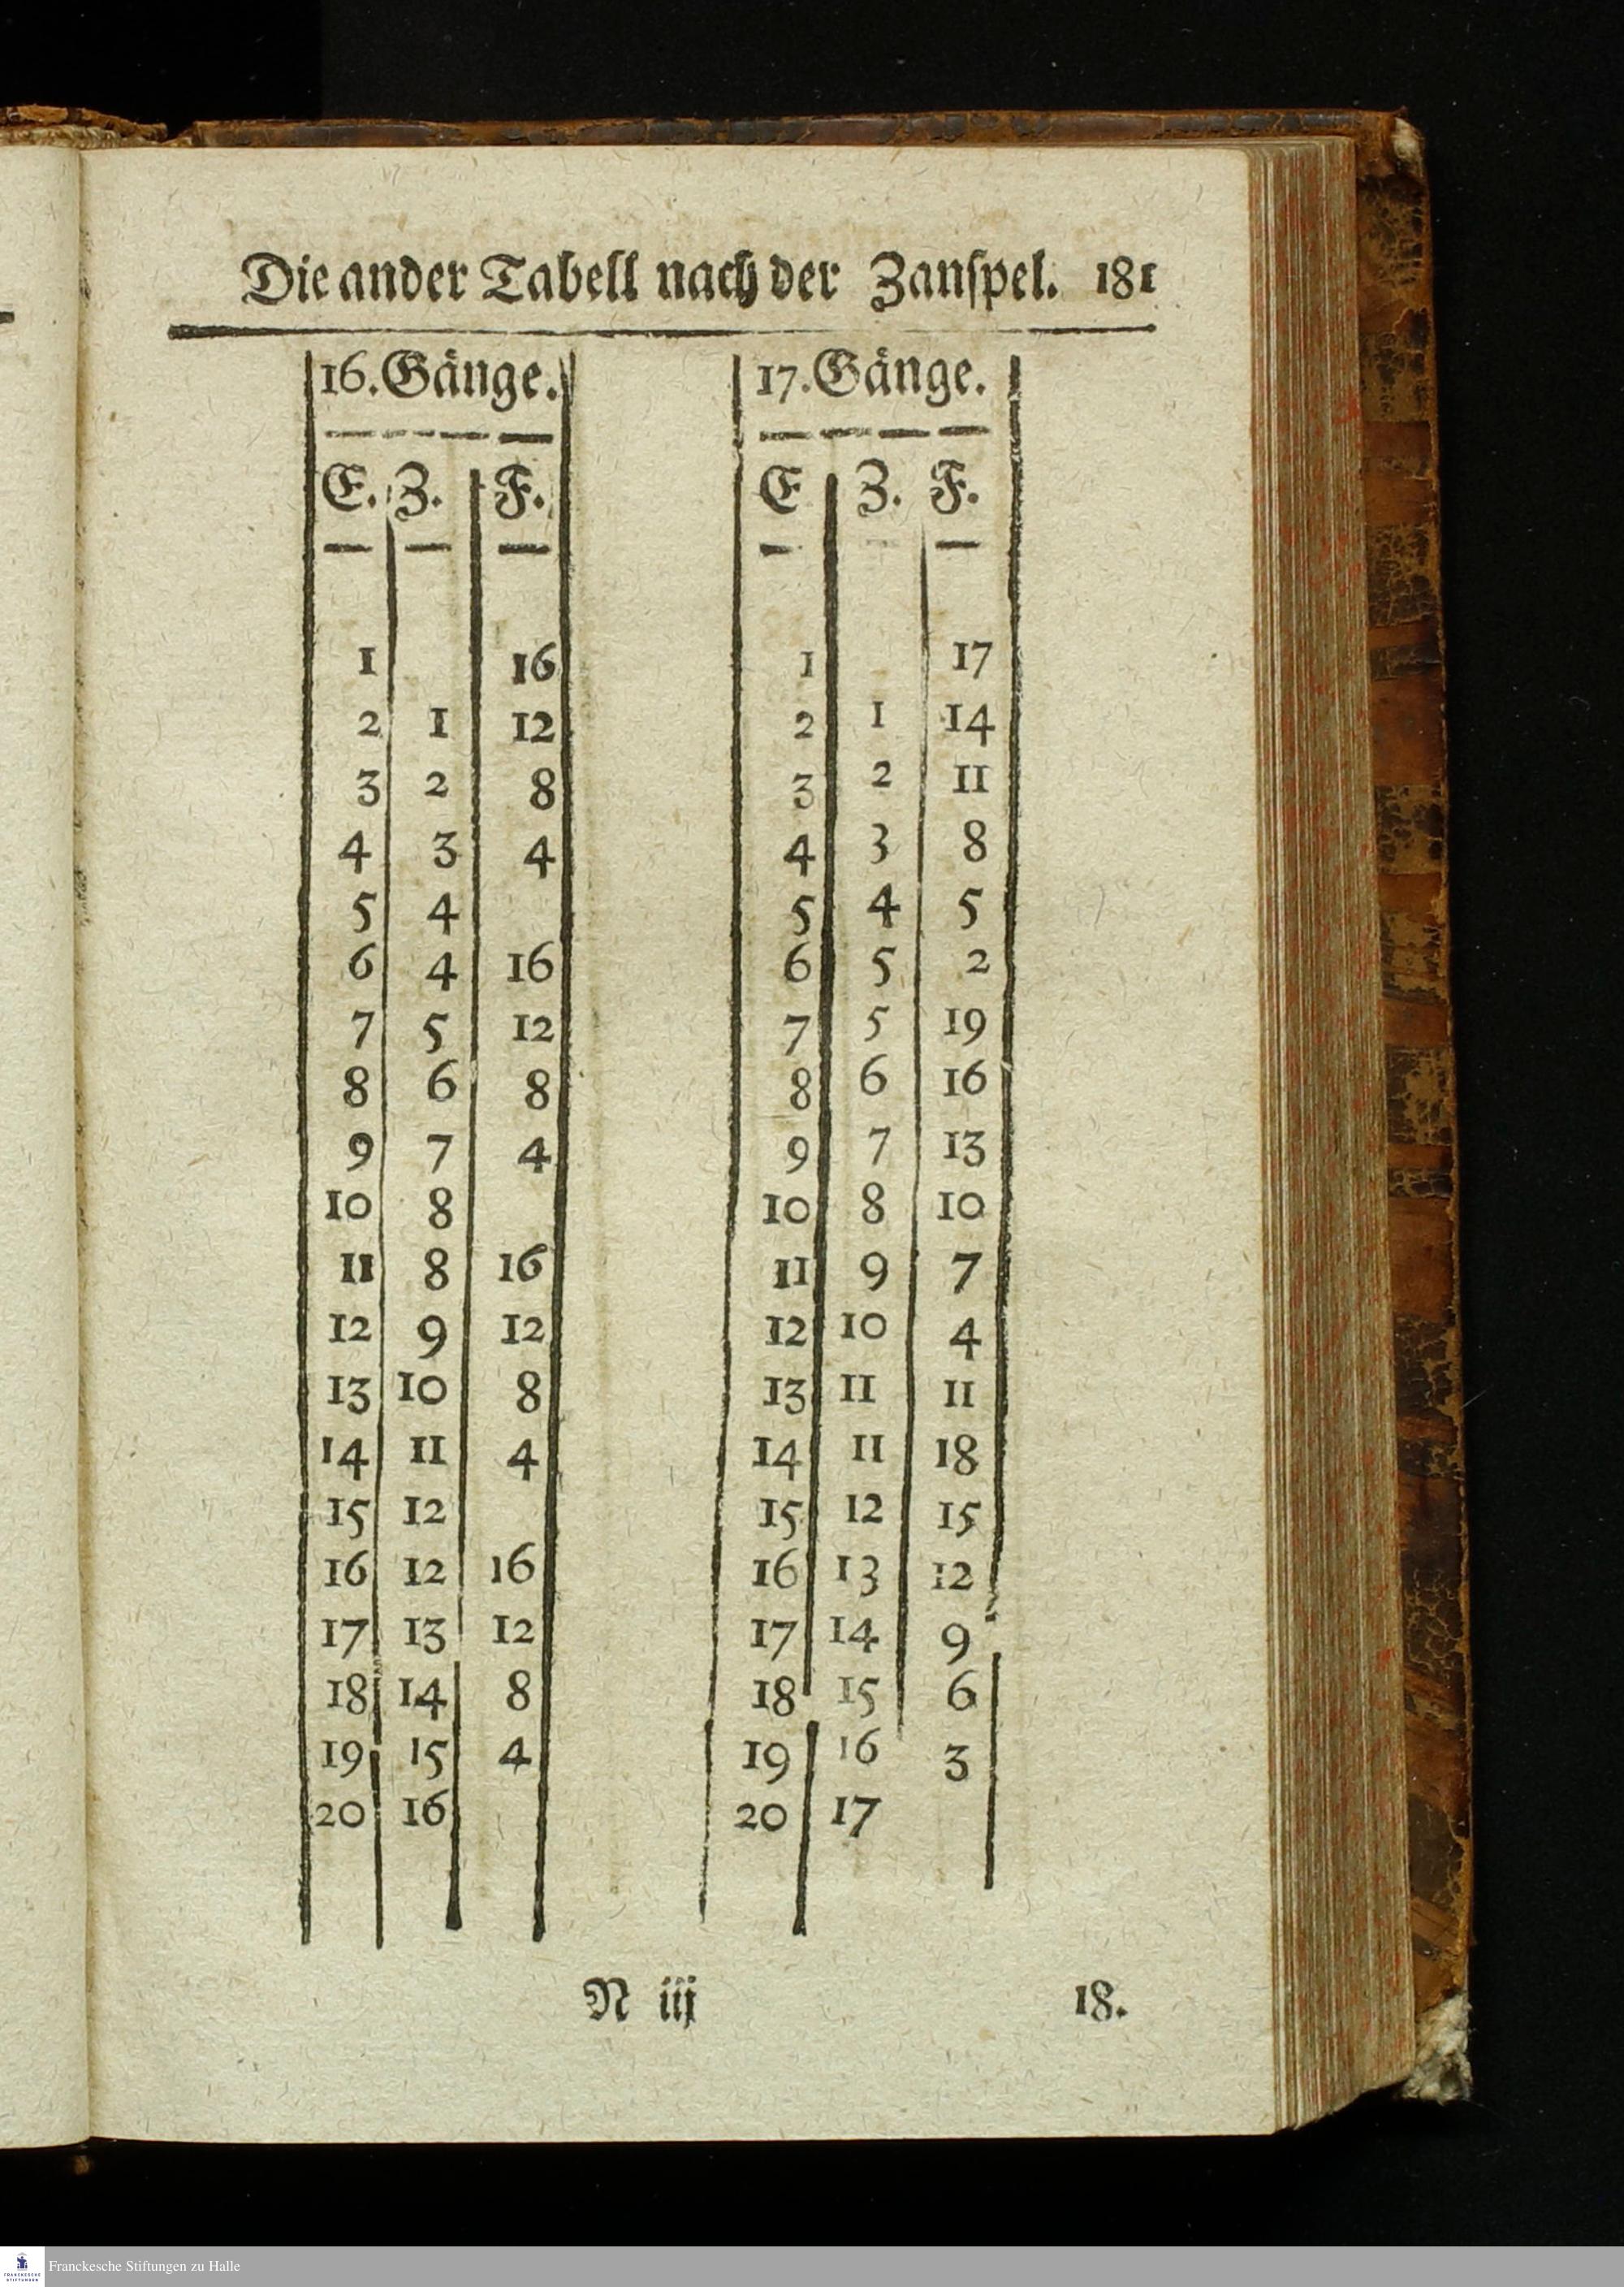 Die ander Tabell nach der Zanſpel. 181
16. Gänge. 17. Gänge.
E. Z. F. E Z. F.
1 16 1 17
2 1 12 2 1 14
3 2 8 3 2 11
4 3 4 4 3 8
5 4 5 4 5
6 4 16 6 5 2
7 5 12 7 5 19
8 6 8 8 6 16
9 7 4 9 7 13
10 8 10 8 10
11 8 16 11 9 7
12 9 12 12 10 4
13 10 8 13 11 11
14 11 4 14 11 18
15 12 15 12 15
16 12 16 16 13 12
17 13 12 17 14 9
18 14 8 18 15 6
19 15 4 19 16 3
20 16 20 17
N iij 18.
FRANCKESCHE STIFTUNGEN
Franckesche Stiftungen zu Halle